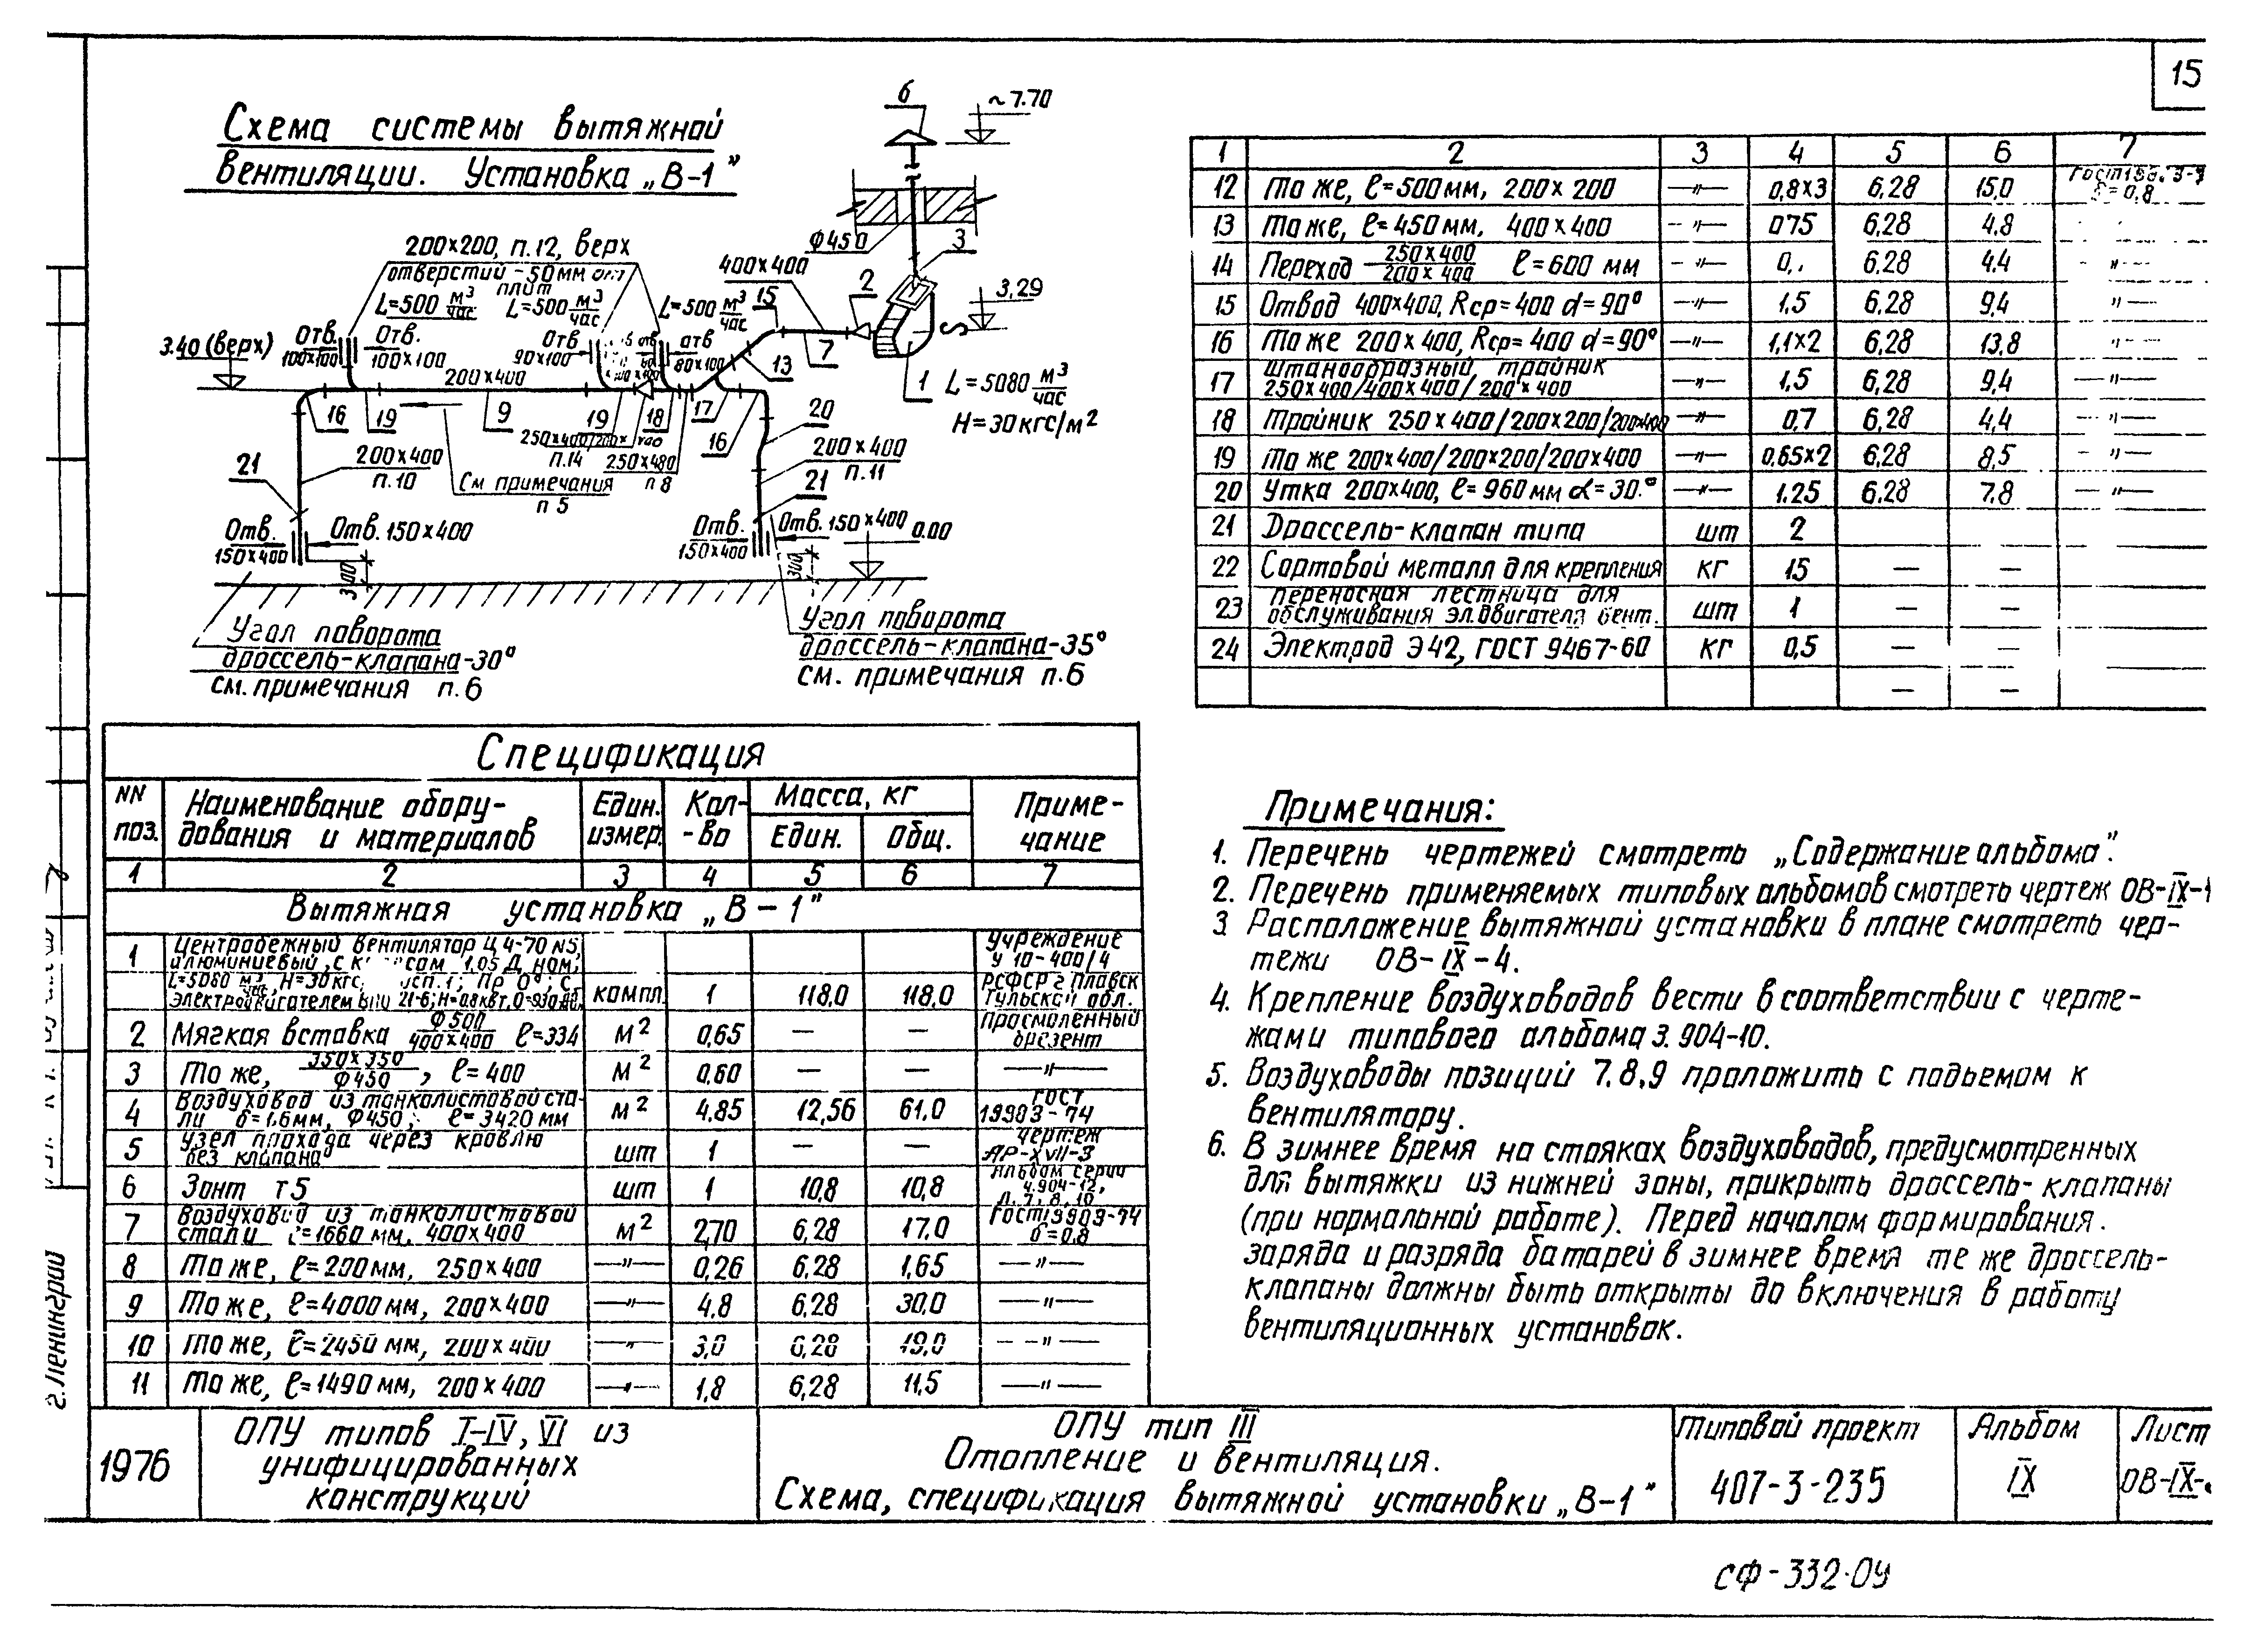 15
Схема системы вытяжной
вентиляции. Установка „В-1"
6
~7.70
200×200, п.12, верх
отверстий -50мм от
плит
L=500 м³/час
L=500 м³/час
L=500 м³/час
400×400
15
2
ф450
3
3,29
3.40 (верх)
Отв.
100×100
Отв.
100×100
Отв
90×100
отв
80×100
7
13
1
L=5080 м³/час
H=30кгс/м²
200×400
16
19
9
19
18
17
16
20
п.14
250×480
п 8
200×400
п.10
200×400
п.11
21
21
См примечания
п 5
Отв.
150×400
Отв. 150×400
300
Отв.
150×400
Отв. 150×400
300
0.00
Угол поворота
дроссель-клапана-30°
см. примечания п.6
Угол поворота
дроссель-клапана-35°
см. примечания п.6
Спецификация
NN поз. Наименование обору-дования и материалов Един. измер. Кол-во Масса, кг Един. Общ. Приме-чание
1 2 3 4 5 6 7
Вытяжная установка „В-1"
1 Центробежный вентилятор Ц4-70 N5,
алюминиевый, с 1,05 Д ном, Учреждение У 10-400/4
L=5080 м³/час, H=30кгс, исп.1; Пр 0°; с
электродвигателем 21-6; компл. 1 118,0 118,0 РСФСР г Плавск Тульской обл.
2 Мягкая вставка ф500/400×400 ℓ=334 м² 0,65 — — Просмоленный брезент
3 То же, 350×350/ф450, ℓ=400 м² 0,60 — — —"—
4 Воздуховод из тонколистовой ста-
ли δ=1,6мм, ф450, ℓ=3420 мм м² 4,85 12,56 61.0 ГОСТ 19903-74
5 Узел прохода через кровлю
без клапана шт 1 — — чертеж АР-XVII-3
6 Зонт т5 шт 1 10,8 10,8 Альбом серии 4.904-12, л. 7, 8, 10
7 Воздуховод из тонколистовой
стали ℓ=1660 мм, 400×400 м² 2,70 6,28 17.0 ГОСТ 19903-74 δ=0.8
8 То же, ℓ=200мм, 250×400 —"— 0,26 6.28 1,65 —"—
9 То же, ℓ=4000 мм, 200×400 —"— 4,8 6,28 30,0 —"—
10 То же, ℓ=2450 мм, 200×400 —"— 3,0 6,28 19,0 —"—
11 То же, ℓ=1490 мм, 200×400 —"— 1,8 6,28 11,5 —"—
1 2 3 4 5 6 7
12 То же, ℓ=500мм, 200×200 —"— 0,8×3 6.28 15,0 δ=0,8
13 То же, ℓ=450мм, 400×400 —"— 075 6,28 4.8
14 Переход 250×400/200×400 ℓ=600 мм —"— 6.28 4.4 —"—
15 Отвод 400×400, Rср=400 d=90° —"— 1.5 6,28 9,4 "—
16 То же 200×400, Rср=400 d=90° —"— 1,1×2 6,28 13,8 "—
17 Штанообразный тройник
250×400/400×400/200×400 —"— 1,5 6,28 9,4 —"—
18 Тройник 250×400/200×200/200×400 —"— 0,7 6,28 4,4 "—
19 То же 200×400/200×200/200×400 —"— 0,65×2 6,28 8,5 —"—
20 Утка 200×400, ℓ=960мм d=30.° —"— 1.25 6,28 7.8 —"—
21 Дроссель-клапан типа шт 2
22 Сортовой металл для крепления кг 15 — —
23 Переносная лестница для
обслуживания эл.двигателя вент. шт 1 — —
24 Электрод Э42, ГОСТ 9467-60 кг 0,5 — —
— —
Примечания:
1. Перечень чертежей смотреть „Содержание альбома".
2. Перечень применяемых типовых альбомов смотреть чертеж ОВ-IX-1
3 Расположение вытяжной установки в плане смотреть чер-
тежи ОВ-IX-4.
4. Крепление воздуховодов вести в соответствии с черте-
жами типового альбома 3.904-10.
5. Воздуховоды позиций 7.8,9 проложить с подьемом к
вентилятору.
6. В зимнее время на стояках воздуховодов, предусмотренных
для вытяжки из нижней зоны, прикрыть дроссель-клапаны
(при нормальной работе). Перед началом формирования.
заряда и разряда батарей в зимнее время те же дроссель-
клапаны должны быть открыты до включения в работу
вентиляционных установок.
г. Ленинград
1976
ОПУ типов I-IV, VI из
унифицированных
конструкций
ОПУ тип III
Отопление и вентиляция.
Схема, спецификация вытяжной установки „В-1"
Типовой проект
407-3-235
Альбом
IX
Лист
ОВ-IX-
СФ-332-09